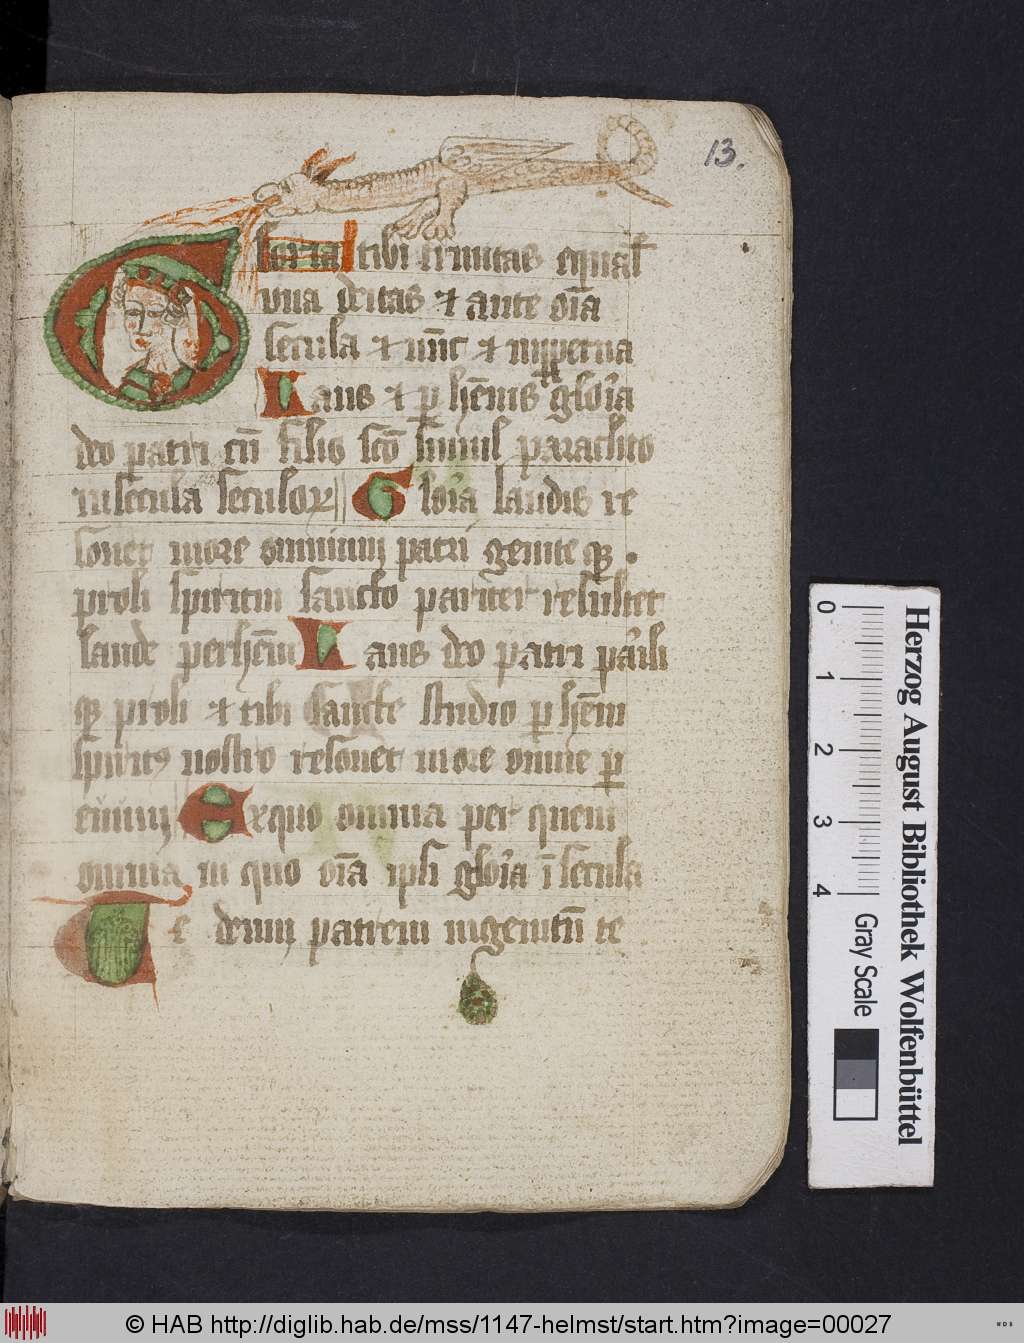 13.
Gloria tibi trinitas equal̄
vna deitas et ante oīa
secula et nūc et inꝑpetua
Laus et ꝑ hēnis glo'ia
deo patri cū filio scō simul paraclito
in secula seculoꝝ Glo'ia laudis re
sonet in ore omnium patri geniteqꝫ
proli spiritui sancto pariter resultet
laude perhēni Laus deo patri pa'ili
qꝫ proli et tibi sancte studio ꝑhēni
spiritꝰ nostro resonet in ore omne ꝑ
euum Ex quo omnia per quem
omnia in quo oīa ipsi glo'ia ī secula
Te deum patrem ingenitū te
0 1 2 3 4
Gray Scale
Herzog August Bibliothek Wolfenbüttel
© HAB http://diglib.hab.de/mss/1147-helmst/start.htm?image=00027